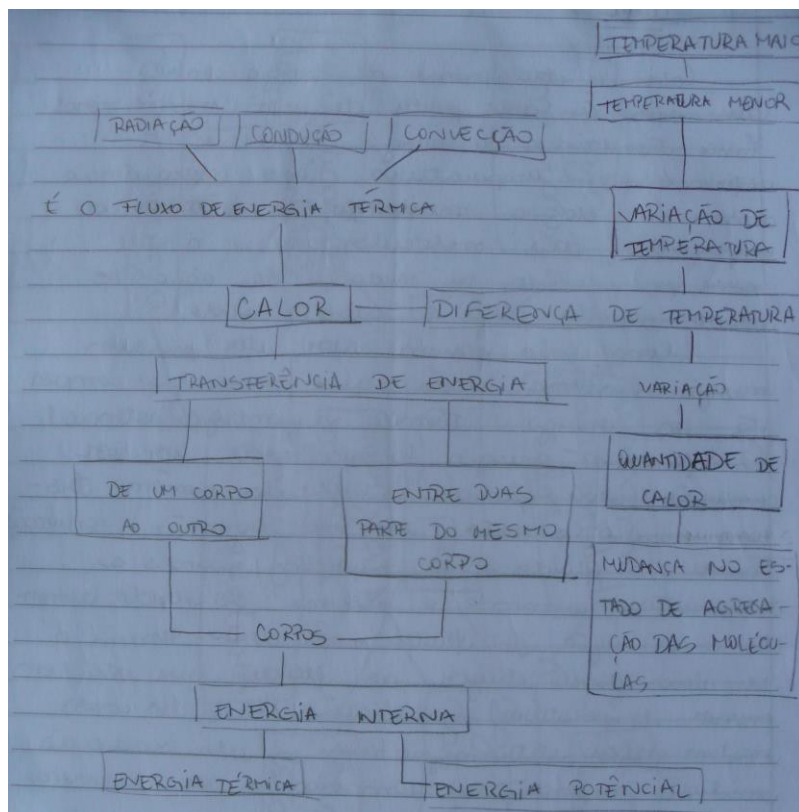 TEMPERATURA MAIO
TEMPERATURA MENOR
RADIAÇÃO
CONDUÇÃO
CONVECÇÃO
É O FLUXO DE ENERGIA TÉRMICA
VARIAÇÃO DE
TEMPERATURA
CALOR
DIFERENÇA DE TEMPERATURA
TRANSFERÊNCIA DE ENERGIA
VARIAÇÃO
DE UM CORPO
AO OUTRO
ENTRE DUAS
PARTE DO MESMO
CORPO
QUANTIDADE DE
CALOR
MUDANÇA NO ES-
TADO DE AGREGA-
ÇÃO DAS MOLÉCU-
LAS
CORPOS
ENERGIA INTERNA
ENERGIA TÉRMICA
ENERGIA POTÊNCIAL